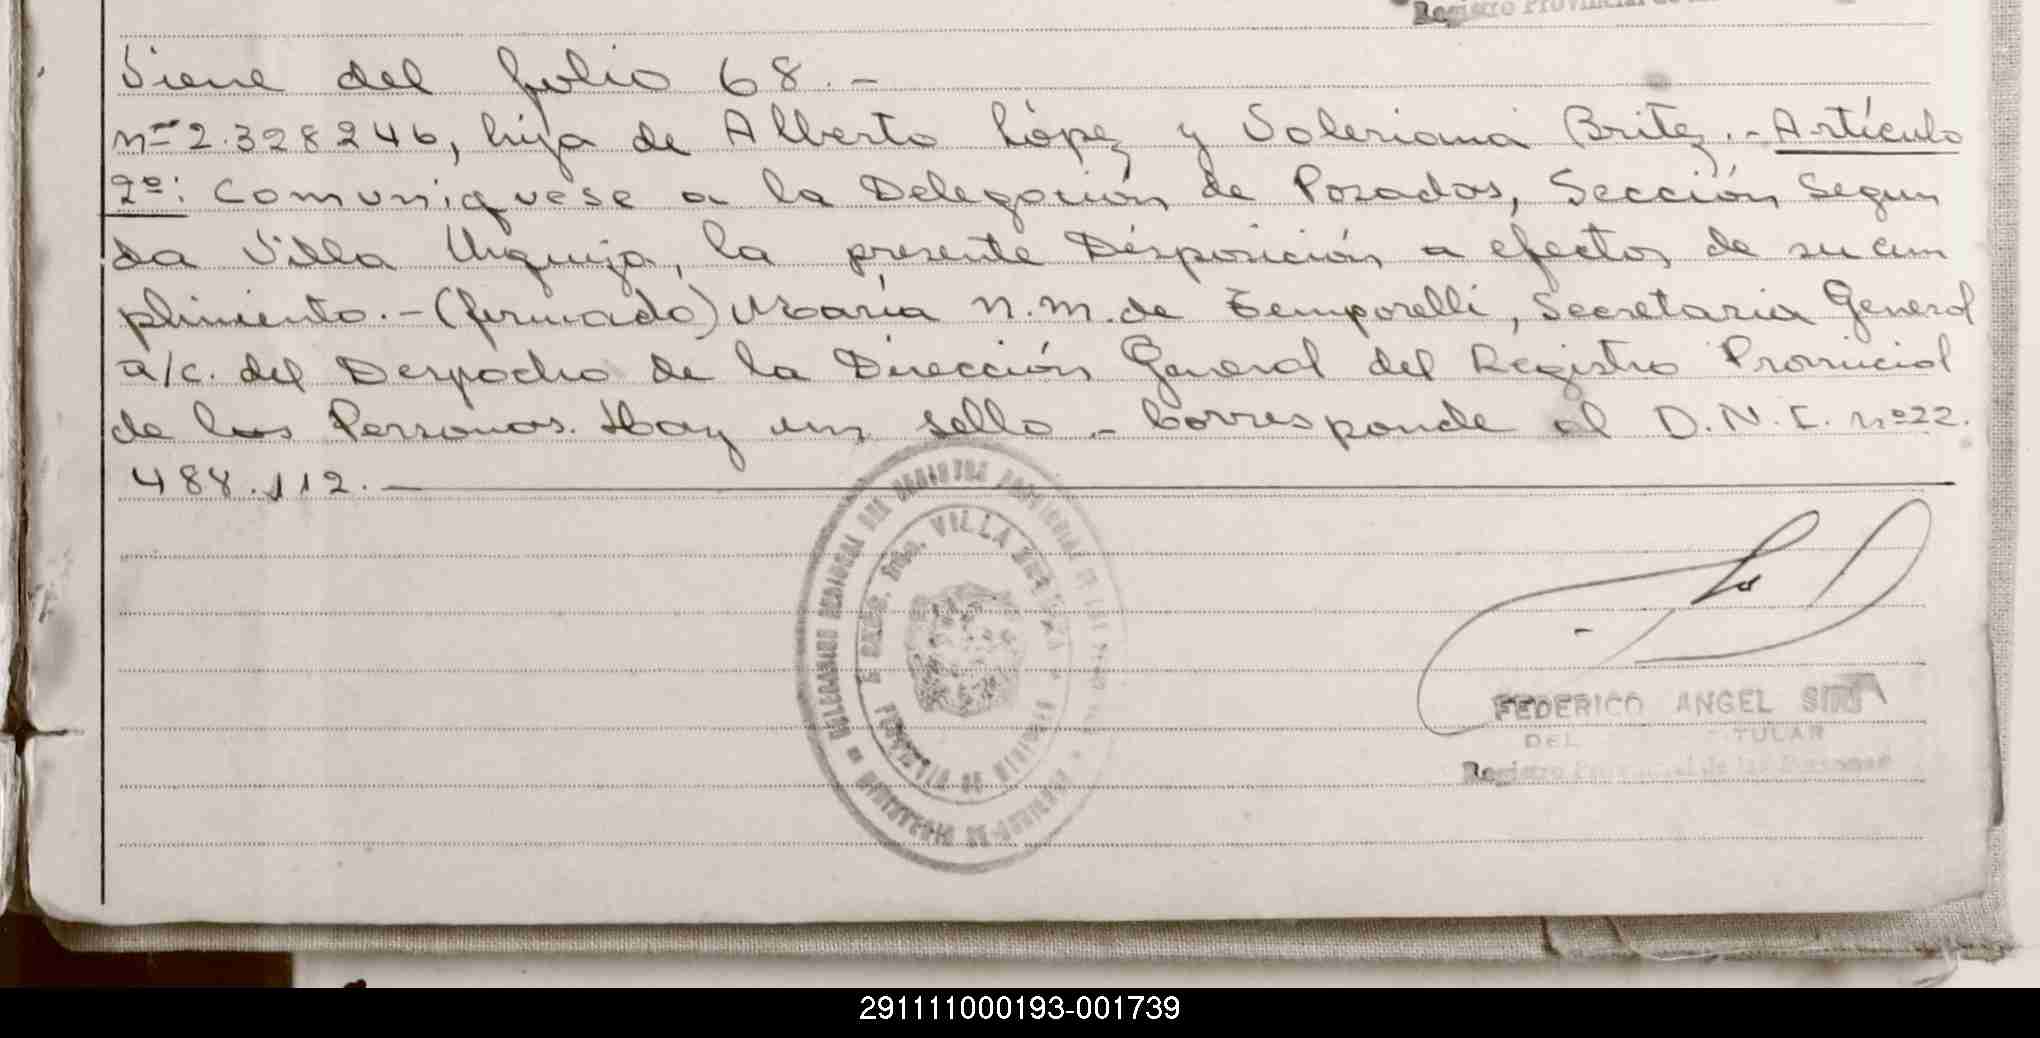 Registro Provincial de
Viene del folio 68.-
nº 2.328246, hija de Alberto López y Valeriana Britez.- Artículo
2º: Comuníquese a la Delegación de Posadas, Sección Segun
da Villa Urquiza, la presente Disposición a efectos de su cum
plimiento.- (firmado) María N.M. de Temporelli, Secretaria General
a/c. del Despacho de la Dirección General del Registro Provincial
de las Personas. Hay un sello.- Corresponde al D.N.I. nº 22.
488.112.-
DELEGADO REGIONAL DEL REGISTRO PROVINCIAL DE LAS PERSONAS
VILLA URQUIZA
PROVINCIA DE MISIONES
FEDERICO ANGEL
DEL TULAR
Registro Provincial de las Personas
291111000193-001739